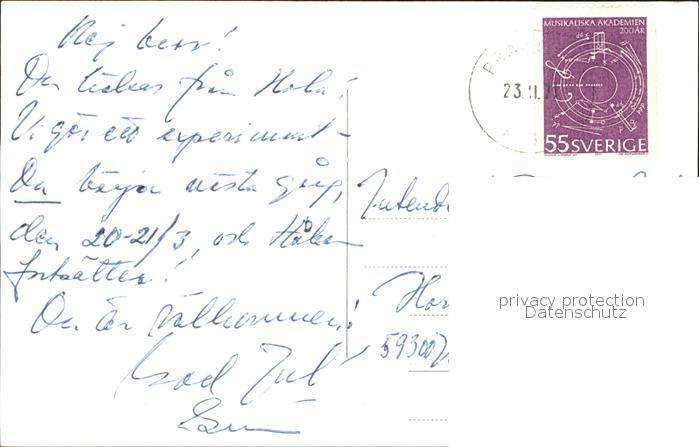 Hej
Du från
Vi gör ett experiment -
Du börja nästa gång,
den 20-21/3, och Håkan
fortsätter!
Du är välkommen!
God Jul
Intend
Hor
59300
MUSIKALISKA AKADEMIEN
200 ÅR
55 SVERIGE
23.11.
privacy protection
Datenschutz